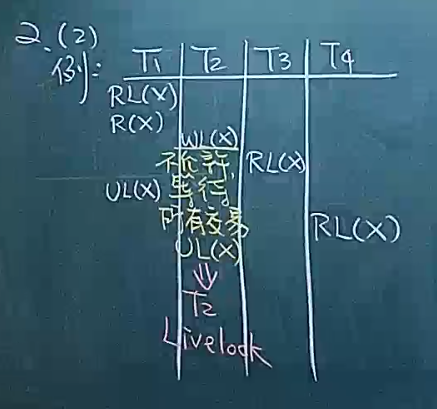 2.(2)
例:
T1 T2 T3 T4
RL(X)
R(X)
WL(X)
不允許, RL(X)
UL(X) 等待
所有交易 RL(X)
UL(X)
⇓
T2
Livelock